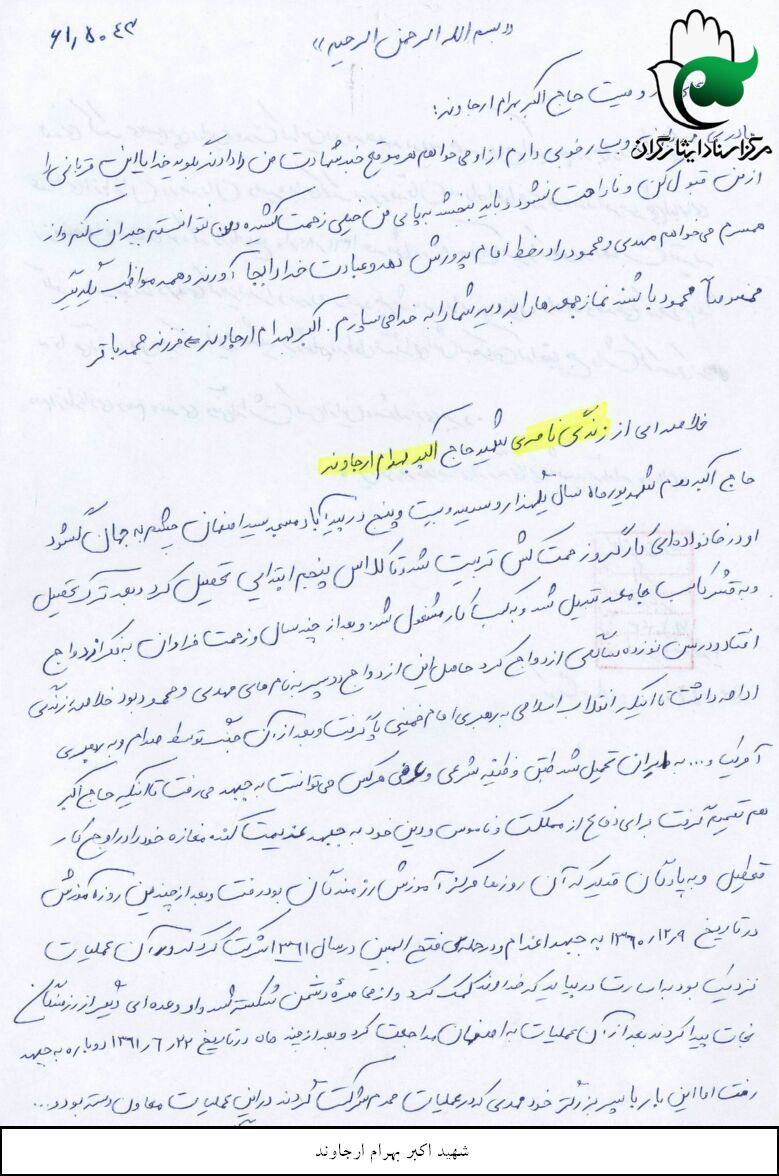 «بسم الله الرحمن الرحیم»
مرکز اسناد ایثارگران
وصیت حاج اکبر بهرام ارجاوند:
و بسیار خوبی دارم از او می خواهم هر موقع خبر شهادت من را دادند بگوید خدایا این قربانی را
از من قبول کن و ناراحت نشود و باید ببخشد به پای من خیلی زحمت کشیده و من نتوانستم جبران کنم و از
همسرم می خواهم مهدی و محمود را در خط امام پرورش دهد و عبادت خدا را بجا آورند و همه مواظب یکدیگر
مخصوصاً محمود باشند نماز جمعه ها را بروید شما را به خدا می سپارم. اکبر بهرام ارجاوند فرزند محمد باقر
خلاصه ای از زندگی نامه ی شهید حاج اکبر بهرام ارجاوند
حاج اکبر دوم شهریور ماه سال یکهزار و سیصد و بیست و پنج در بیدآباد مسجد سید اصفهان چشم به جهان گشود
او در خانواده ای کارگر و زحمت کش تربیت شد و تا کلاس پنجم ابتدایی تحصیل کرد و بعد ترک تحصیل
و به قشر کاسب جامعه تبدیل شد و به کسب کار مشغول شد و بعد از چند سال و زحمت فراوان به فکر ازدواج
افتاد و در سن نوزده سالگی ازدواج کرد حاصل این ازدواج دو پسر به نام های مهدی و محمود بود خلاصه زندگی
ادامه داشت تا اینکه انقلاب اسلامی به رهبری امام خمینی پا گرفت و بعد از آن جنگ توسط صدام و به رهبری
آمریکا و... به ایران تحمیل شد طبق وظیفه شرعی و عرفی هر کس می توانست به جبهه می رفت تا اینکه حاج اکبر
هم تصمیم گرفت برای دفاع از مملکت و ناموس و دین خود به جبهه عزیمت کند مغازه خود را در اوج کار
تعطیل و به پادگان غدیر که آن روزها مرکز آموزش رزمندگان بود رفت و بعد از چندین روز آموزش
در تاریخ ۱۳۶۰/۱۲/۹ به جبهه اعزام و در حمله فتح المبین در سال ۱۳۶۱ شرکت کرد که در آن عملیات
نزدیک بود به اسارت در بیاید که خداوند کمک کرد و از محاصره دشمن شکسته شد و او و عده ای دیگر از رزمندگان
نجات پیدا کردند بعد از آن عملیات به اصفهان مراجعت کرد و بعد از چند ماه در تاریخ ۱۳۶۱/۶/۲۲ دوباره به جبهه
رفت اما این بار با پسر بزرگتر خود مهدی که در عملیات محرم شرکت کردند در این عملیات معاون دسته بود و...
شهید اکبر بهرام ارجاوند